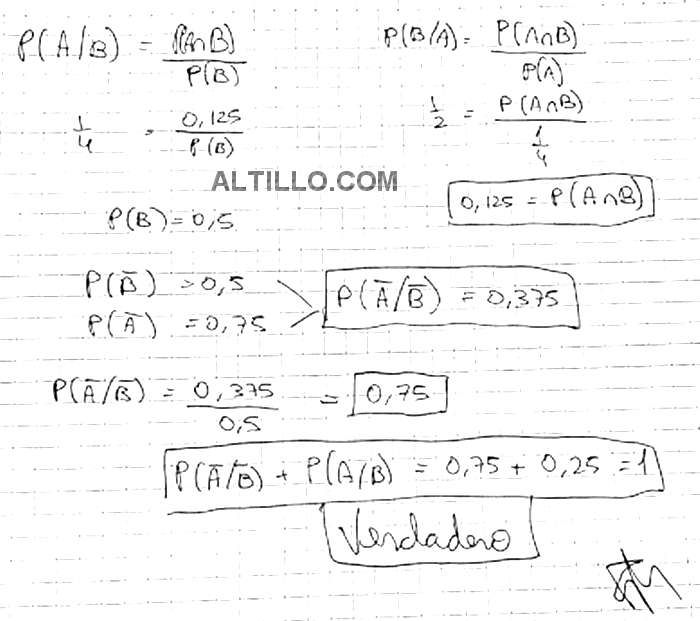 P(A/B) = P(A∩B) / P(B)
P(B/A) = P(A∩B) / P(A)
1/4 = 0,125 / P(B)
1/2 = P(A∩B) / 1/4
ALTILLO.COM
P(B) = 0,5
0,125 = P(A∩B)
P(B̅) = 0,5
P(A̅) = 0,75
P(A̅/B̅) = 0,375
P(A̅/B̅) = 0,375 / 0,5 = 0,75
P(A̅/B̅) + P(A/B) = 0,75 + 0,25 = 1
Verdadero